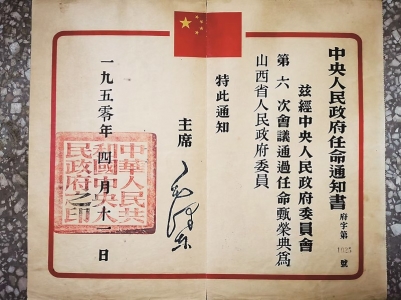 中央人民政府任命通知書
府字第1825號
茲經中央人民政府委員會
第六次會議通過任命甄榮典為
山西省人民政府委員
特此通知
主席
毛澤東
一九五零年四月十二日
中華人民共
和國中央人
民政府之印